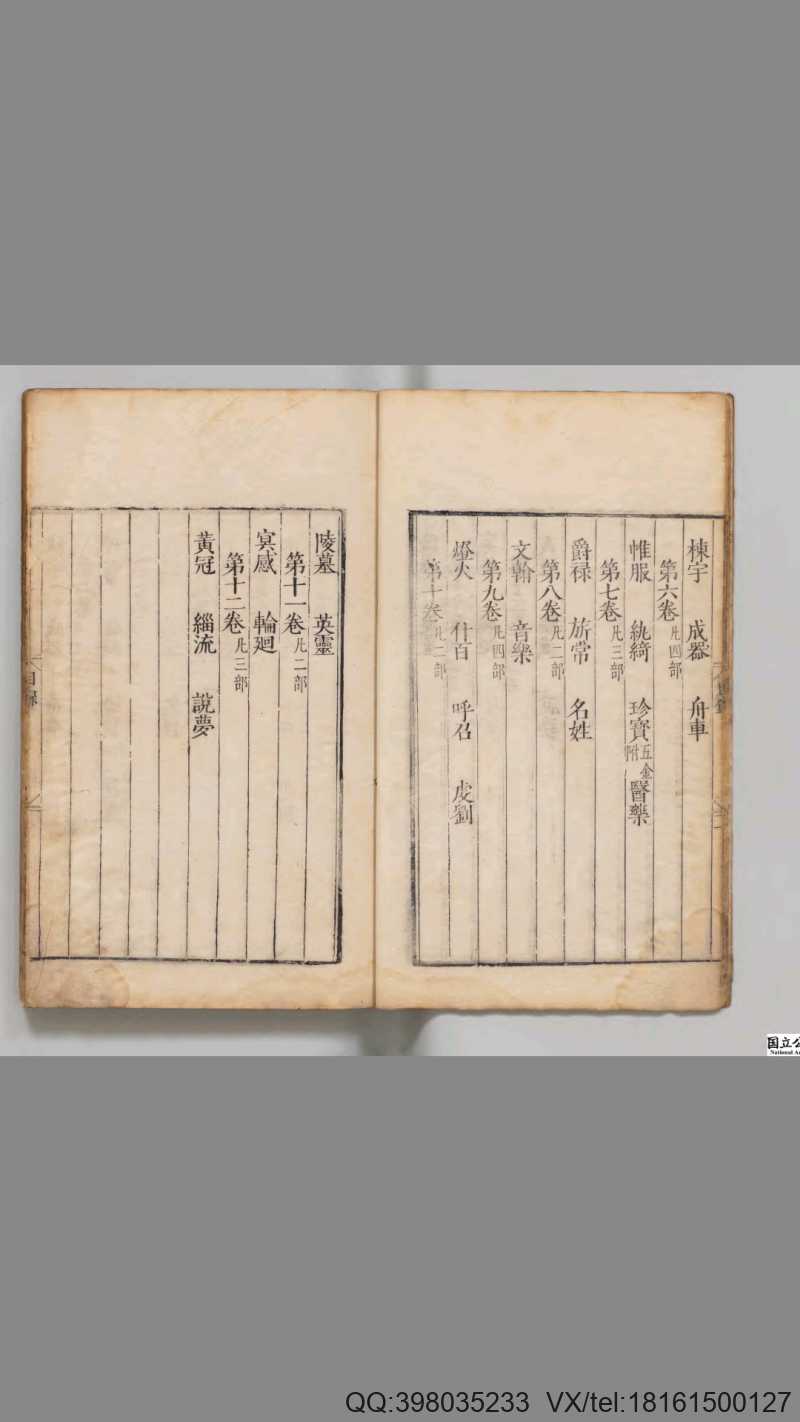 棟宇　成器　舟車
第六卷凡四部
帷服　紈綺　珍寶五金附　醫藥
第七卷凡三部
爵祿　旂常　名姓
第八卷凡二部
文翰　音樂
第九卷凡四部
燈火　什百　呼召　虔劉
第十卷凡二部
陵墓　英靈
第十一卷凡二部
冥感　輪迴
第十二卷凡三部
黃冠　緇流　說夢
目錄
国立公
National A
QQ:398035233 VX/tel:18161500127